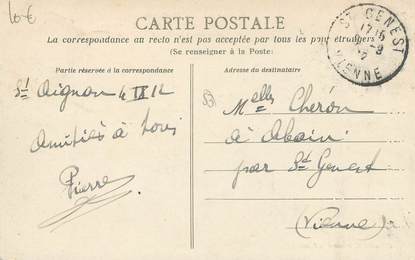 10 €
CARTE POSTALE
La correspondance au recto n'est pas acceptée par tous les pays étrangers
(Se renseigner à la Poste)
Partie réservée à la correspondance
St Aignan 4 IX 12
Amitiés à tous
Pierre
Adresse du destinataire
Melles Chéron
à Abain
par St Genest
(Vienne)
ST GENEST
17 15
-9
12
VIENNE